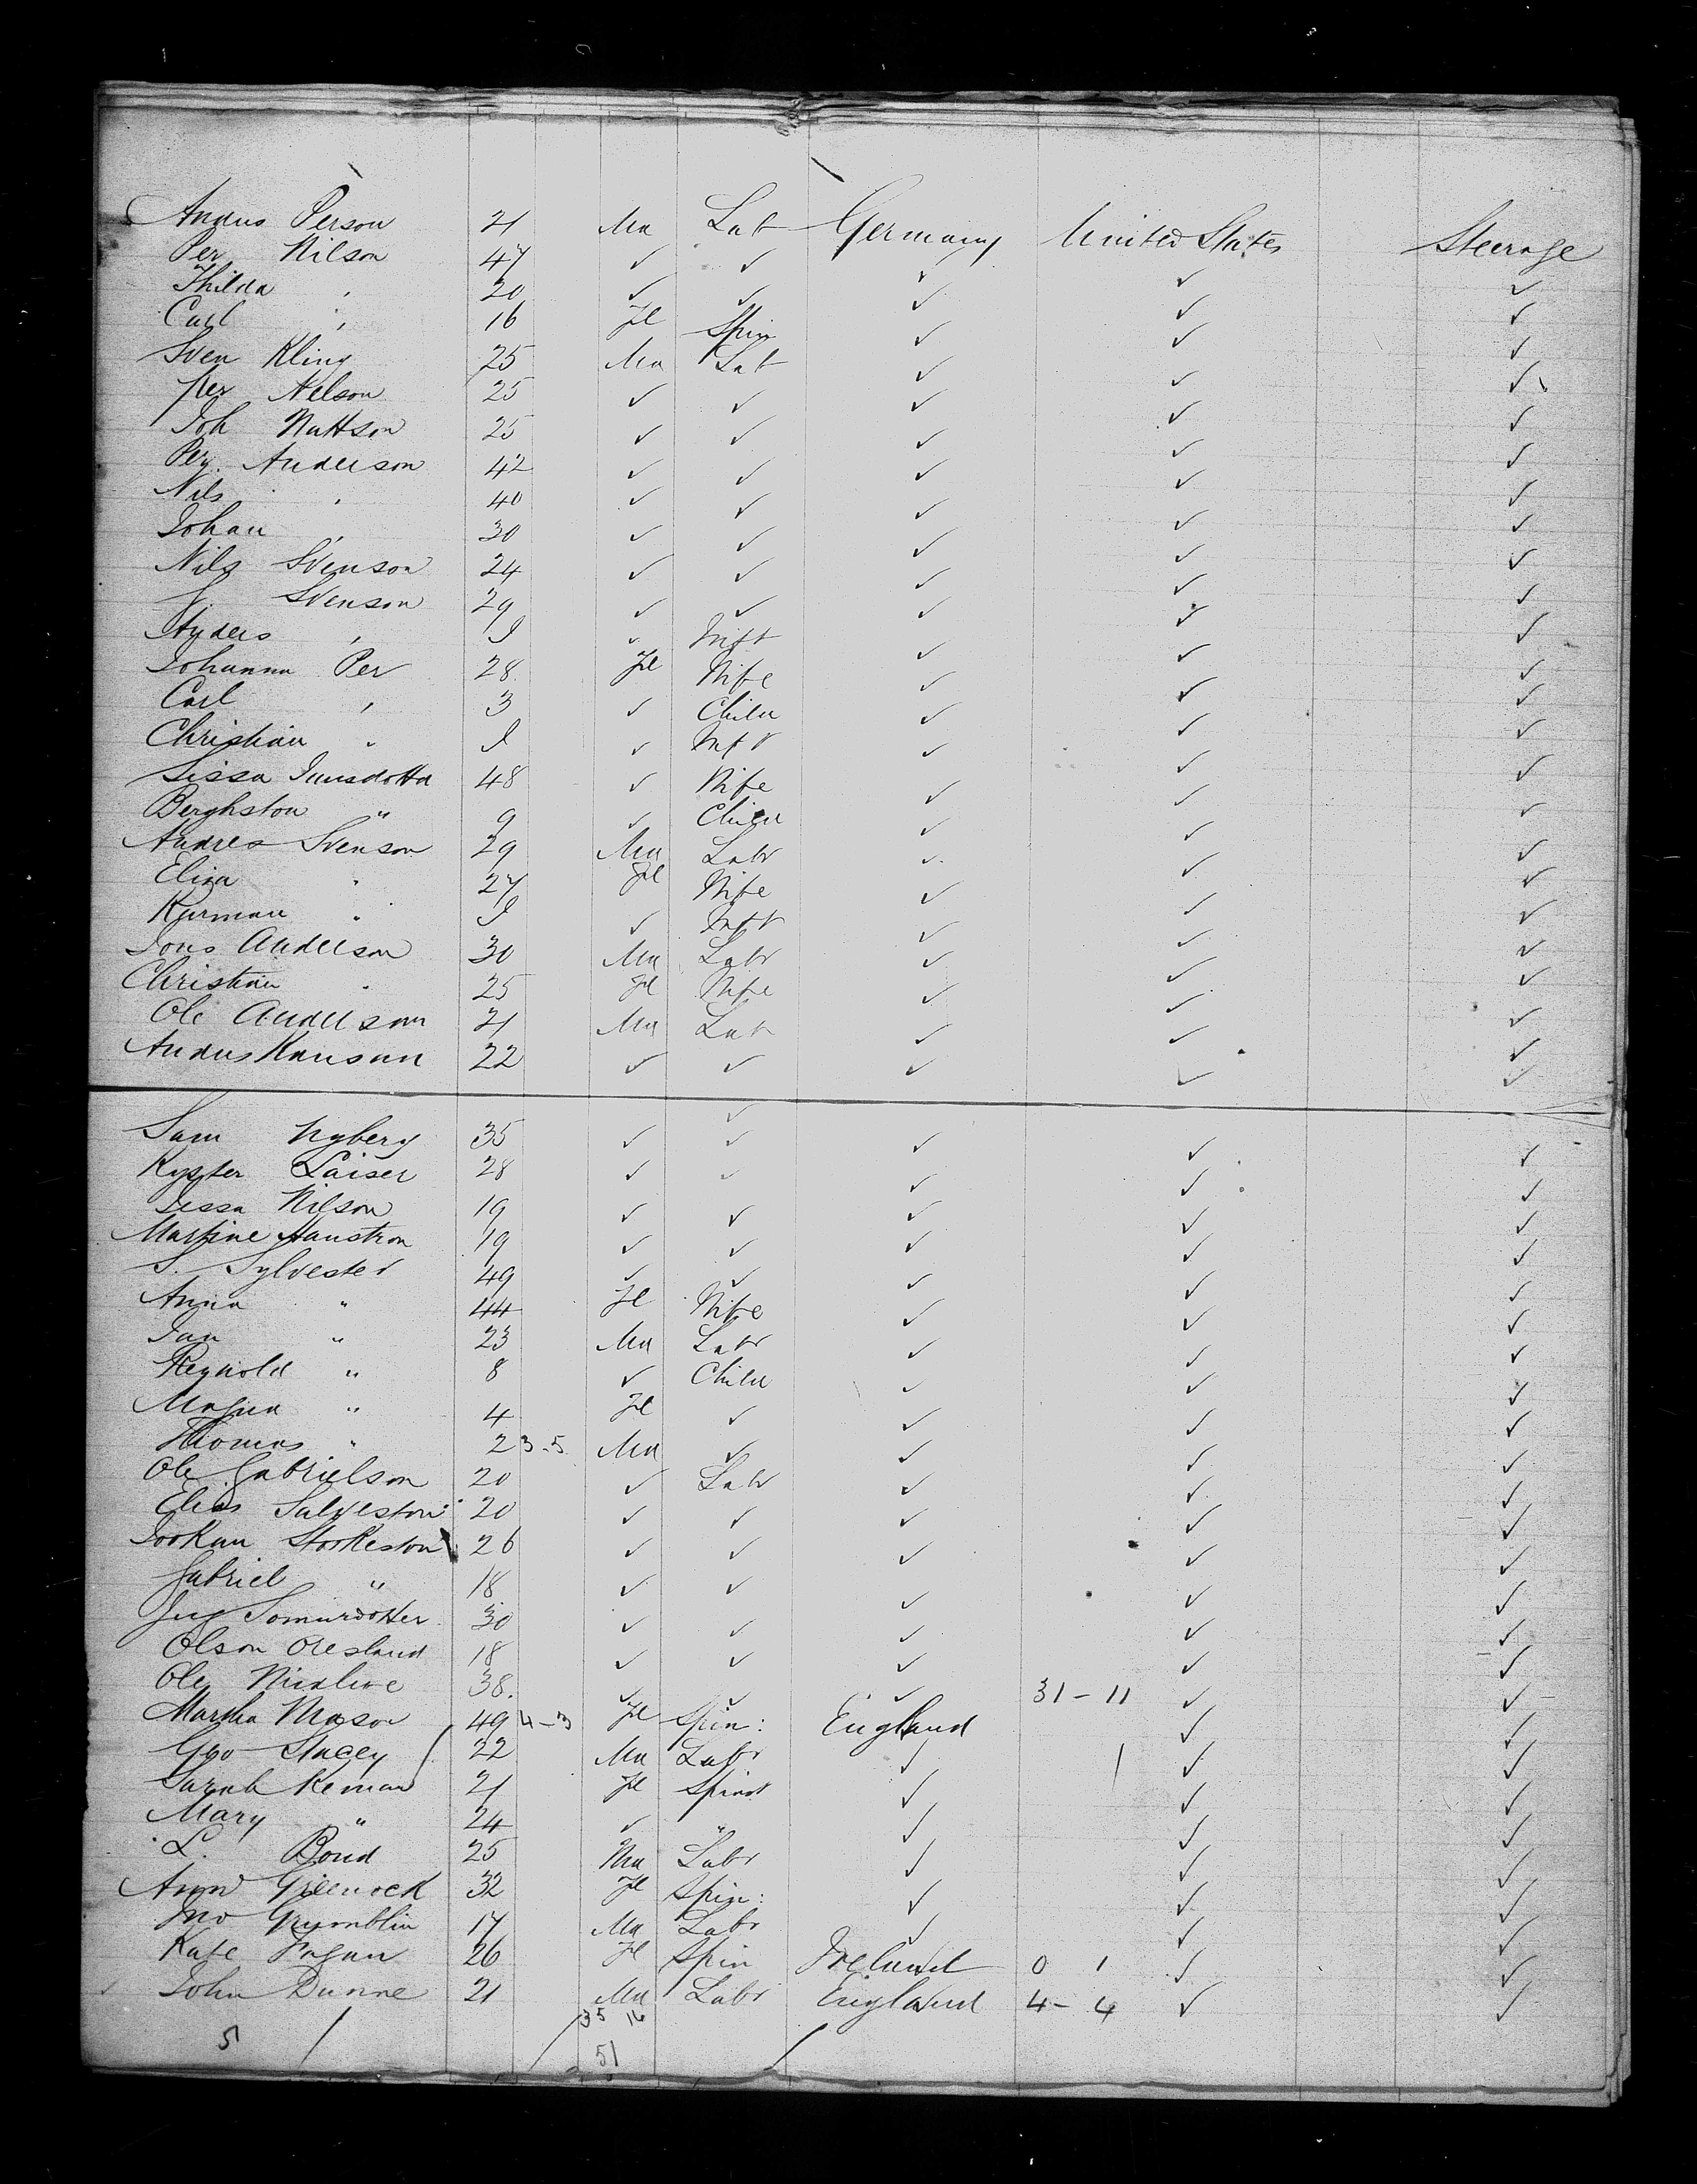 Andus Person 21 Ma Lab Germany United States Steerage
Per Nilson 47 ✓ ✓ ✓ ✓ ✓
Thilda , 20 ✓ ✓ ✓ ✓ ✓
Carl , 16 Fl Spin ✓ ✓ ✓
Sven Kling 25 Ma Lab ✓ ✓ ✓
Per Nelson 25 ✓ ✓ ✓ ✓ ✓
Joh Mattson 25 ✓ ✓ ✓ ✓ ✓
Per Anderson 42 ✓ ✓ ✓ ✓ ✓
Nils , 40 ✓ ✓ ✓ ✓ ✓
Johan , 30 ✓ ✓ ✓ ✓ ✓
Nils Svenson 24 ✓ ✓ ✓ ✓ ✓
J. Svenson 29 ✓ ✓ ✓ ✓ ✓
Anders , I ✓ Inft ✓ ✓ ✓
Johanna Per 28 Fl Wife ✓ ✓ ✓
Carl , 3 ✓ Child ✓ ✓ ✓
Christian " I ✓ Inft ✓ ✓ ✓
Sissa Junsdotta 48 ✓ Wife ✓ ✓ ✓
Berghston " 9 ✓ Child ✓ ✓ ✓
Andres Svenson 29 Ma Labr ✓ ✓ ✓
Elina " 27 Fl Wife ✓ ✓ ✓
Kjrman " I ✓ Inft ✓ ✓ ✓
Jons Anderson 30 Ma Labr ✓ ✓ ✓
Christian " 25 Fl Wife ✓ ✓ ✓
Ole Anderson 21 Ma Lab ✓ ✓ ✓
Andus Hanson 22 ✓ ✓ ✓ ✓ ✓
Sam Nyberg 35 ✓ ✓ ✓ ✓ ✓
Kyster Laiser 28 ✓ ✓ ✓ ✓ ✓
Sissa Nilson 19 ✓ ✓ ✓ ✓ ✓
Martine Hanstron 19 ✓ ✓ ✓ ✓ ✓
S. Sylvester 49 ✓ ✓ ✓ ✓ ✓
Anna " 44 Fl Wife ✓ ✓ ✓
Jan " 23 Ma Labr ✓ ✓ ✓
Reynold " 8 ✓ Child ✓ ✓ ✓
" 4 Fl ✓ ✓ ✓ ✓
Thomas " 2 3-5 Ma ✓ ✓ ✓ ✓
Ole Gabrielson 20 ✓ Labr ✓ ✓ ✓
Elias Salveston 20 ✓ ✓ ✓ ✓ ✓
Jookan Stokeston 26 ✓ ✓ ✓ ✓ ✓
Gabriel " 18 ✓ ✓ ✓ ✓ ✓
Jug Somurdotter 30 ✓ ✓ ✓ ✓ ✓
Olson Oresland 18 ✓ ✓ ✓ ✓ ✓
Ole 38. ✓ ✓ ✓ 31-11 ✓ ✓
Martha Mason 49 4-3 Fl Spin: England ✓ ✓
Geo Stacey 22 Ma Labr ✓ ✓ ✓
Sarah Keman 21 Fl Spinst ✓ ✓ ✓
Mary " 24 ✓ " ✓ ✓ ✓
L. Bond 25 Ma Labr ✓ ✓ ✓
Ann Greenock 32 Fl Spin: ✓ ✓ ✓
Jno Grumblin 17 Ma Labr ✓ ✓ ✓
Kate Fagan 26 Fl Spin Ireland 0 1 ✓ ✓
John Dunne 21 Ma Labr England 4-4 ✓ ✓
35 16
5 / 51